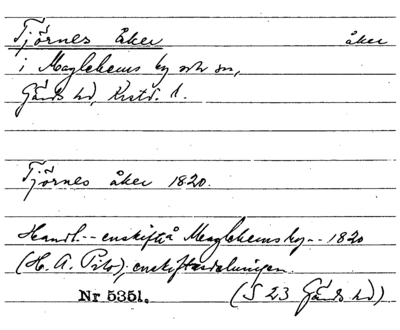 Tjörnes åker åker
i Maglehems by och sn,
Gärds hd, Krstd. l.
Tjörnes åker 1820.
Handl. - enskifte å Maglehems by - - 1820
(H. A. Pilo), enskiftesdelningen.
Nr 5351. (S 23 Gärds hd)